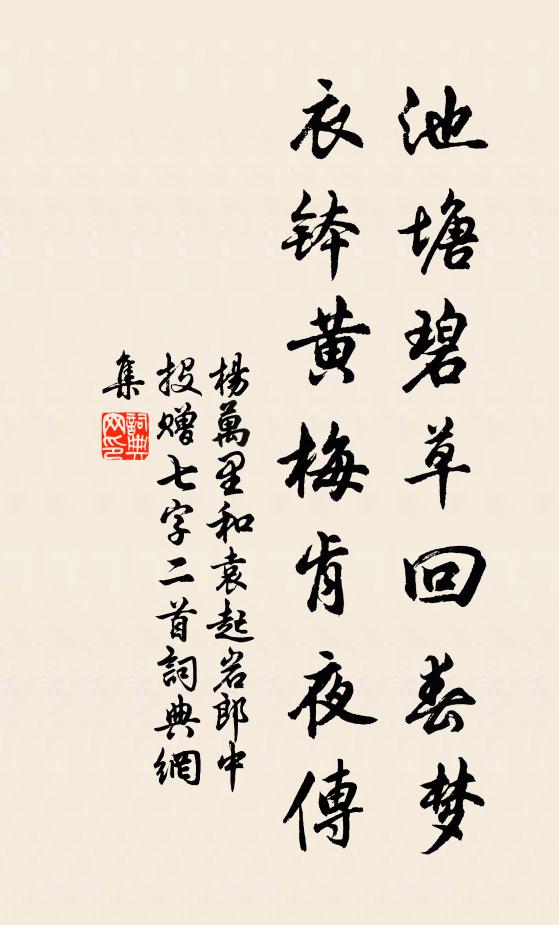 池塘碧草回春梦
衣钵黄梅肯夜傳
楊萬里和袁起岩郎中
投赠七字二首詞典網
集
詞典
网印